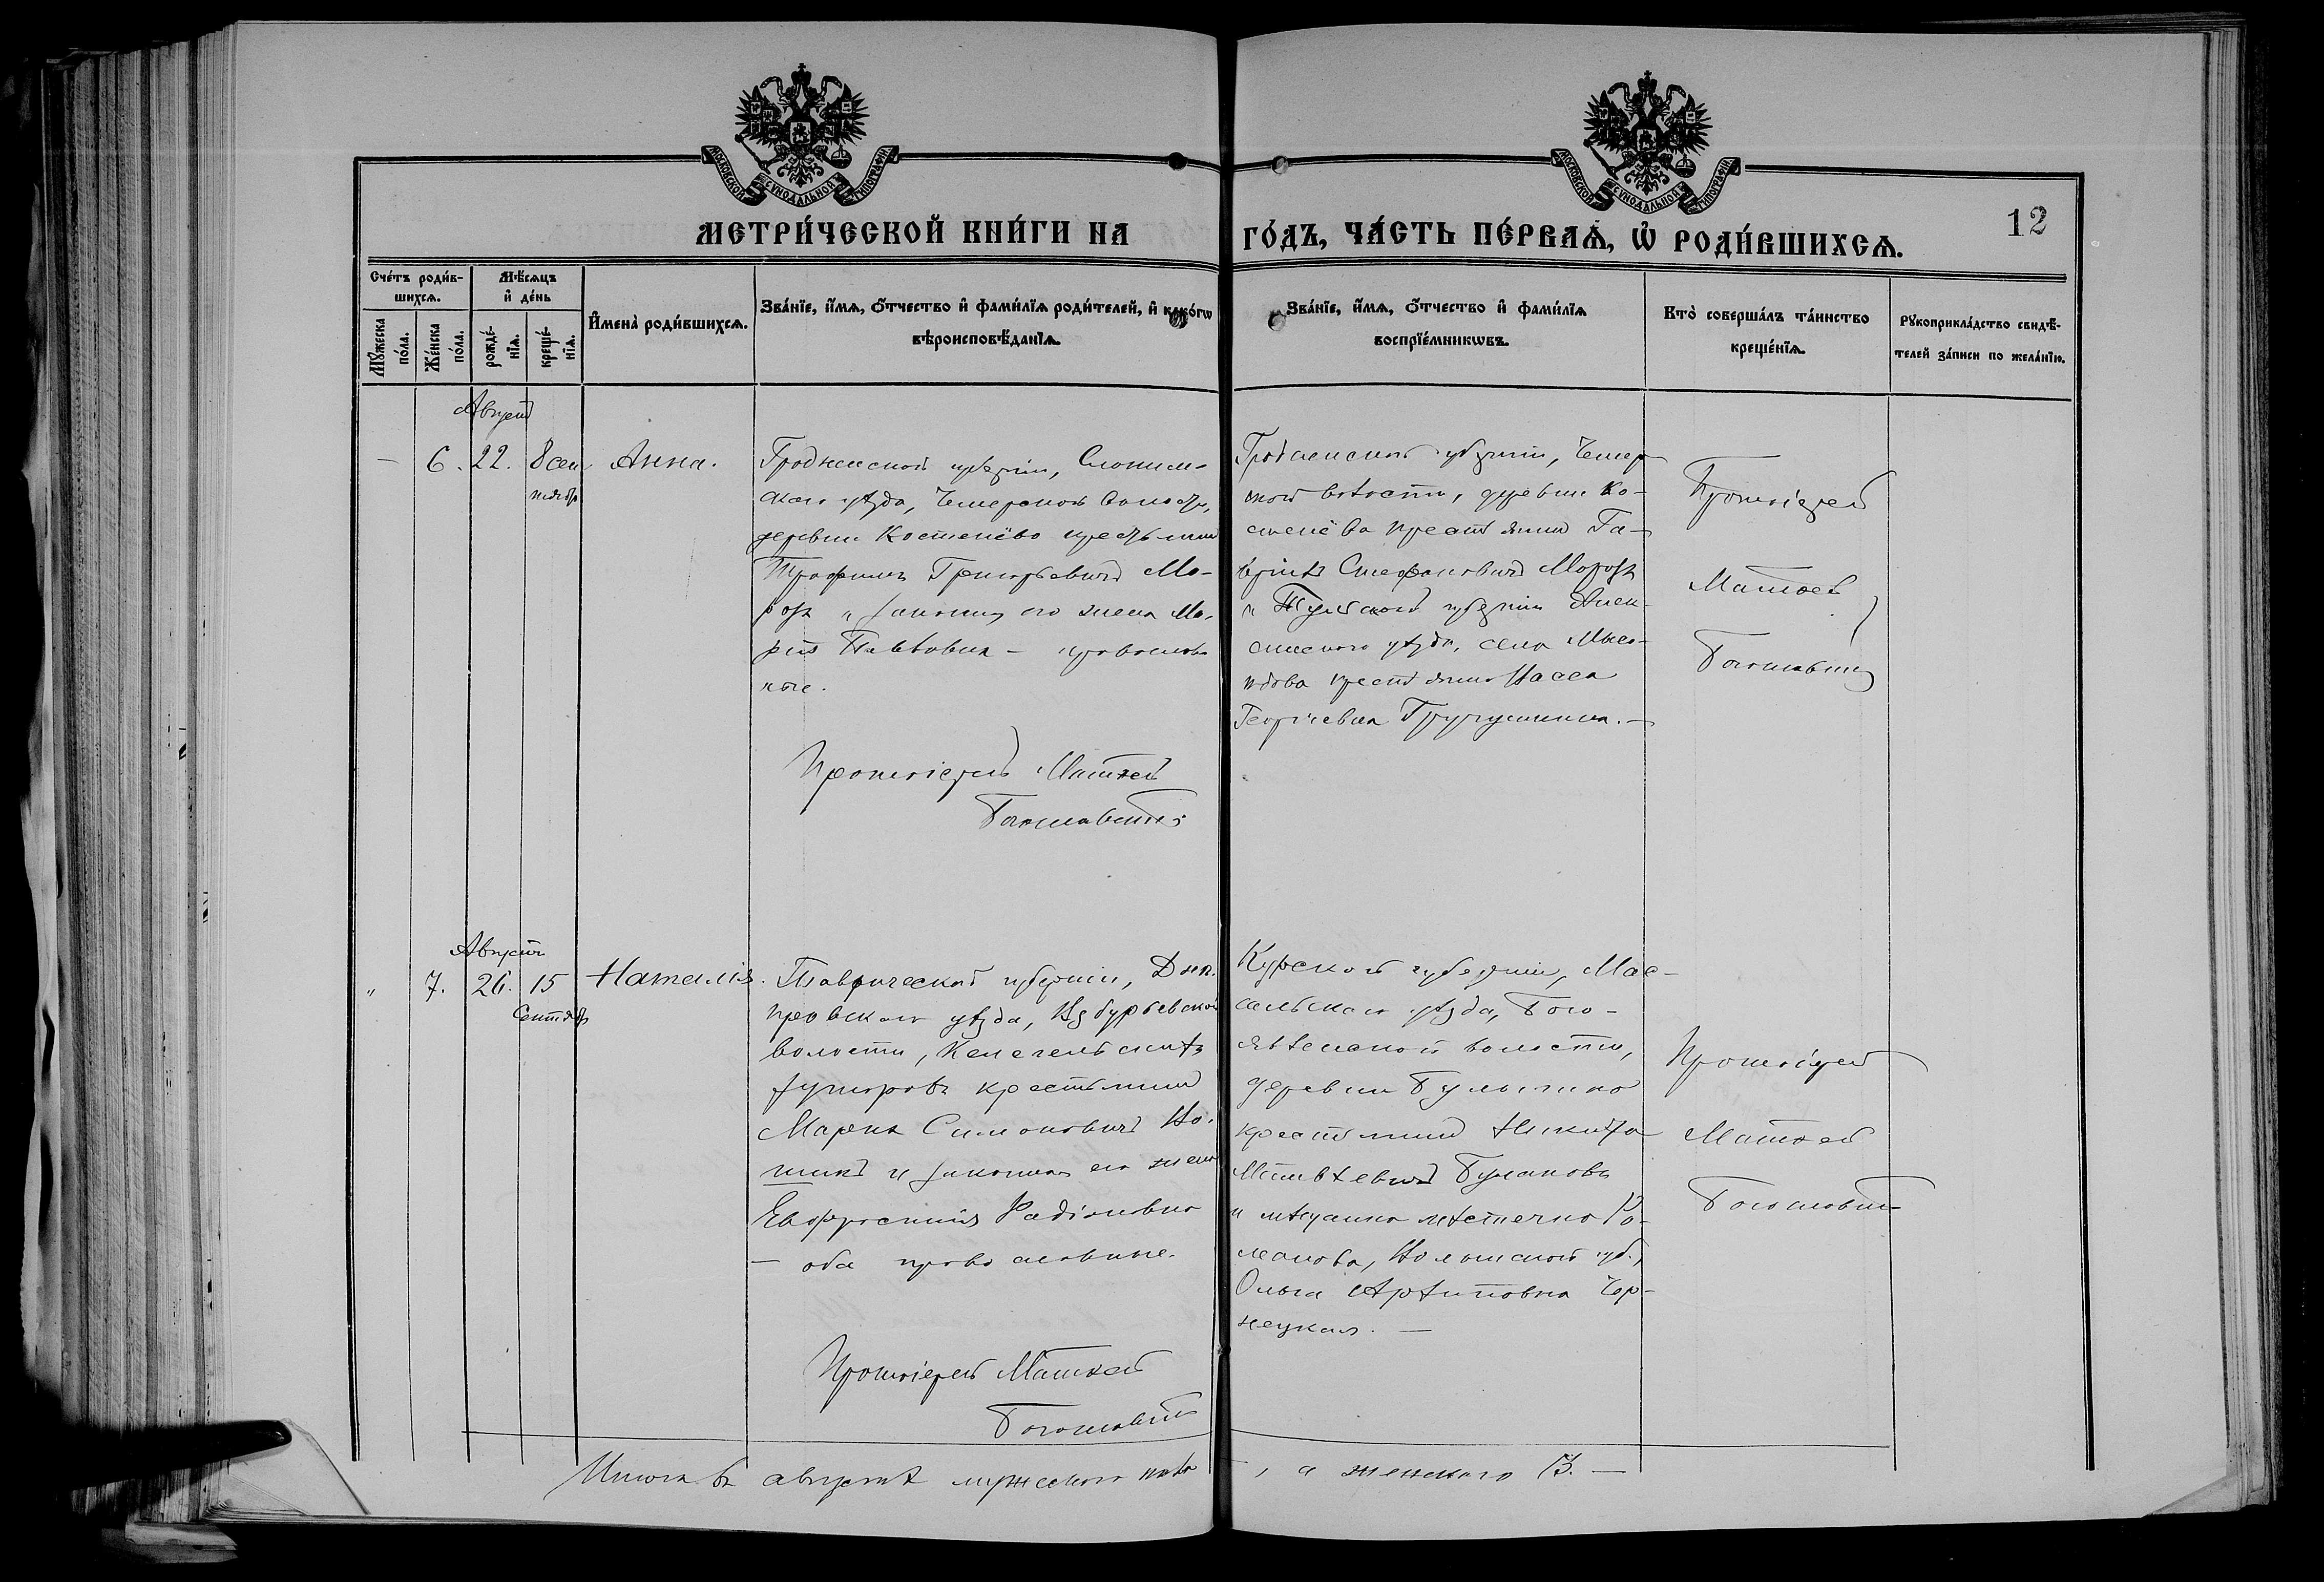 МОСКОВСКОЙ СѴНОДАЛЬНОЙ ТИПОГРАФІИ
МОСКОВСКОЙ СѴНОДАЛЬНОЙ ТИПОГРАФІИ
МЕТРИ́ЧЕСКОЙ КНИ́ГИ НА ГО́ДЪ, ЧА́СТЬ ПЕ́РВАѦ, Ѡ҆ РОДИ́ВШИХСѦ.
12
Сче́тъ роди́в-
шихсѧ.
Мѣ́сѧцъ
и҆ де́нь
Мꙋ́жеска по́ла.
Же́нска по́ла.
рожде́-
нїѧ.
креще́-
нїѧ.
И҆мена̀ роди́вшихсѧ.
Зва́нїе, и҆́мѧ, ѻ҆́тчество и҆ фами́лїѧ роди́телей, и҆ како́гѡ
вѣроисповѣ́данїѧ.
Зва́нїе, и҆́мѧ, ѻ҆́тчество и҆ фами́лїѧ
воспрїе́мникѡвъ.
Кто̀ соверша́лъ та́инство
креще́нїѧ.
Рꙋкоприкла́дство свидѣ́-
телей за́писи по жела́нїю.
Августъ
— 6. 22. 8 сен
тября
Анна.
Гродненской губерніи, Слоним-
скаго уѣзда, Чемерской волости,
деревни Костенёво крестьянинъ
Трофимъ Григорьевичъ Мо-
розъ и законная его жена Ма-
рія Павловна — православ
ные.
Протоіерей Матѳей
Богословскій
Гродненской губерніи, Чемер
ской волости, деревни Ко-
стенёво крестьянинъ Га-
вріилъ Стефановичъ Морозъ
и Тульской губерніи Алек-
синскаго уѣзда, села
крестьянка
Георгіевна
Протоіерей
Матѳей
Богословскій
Августъ
" 7. 26. 15
Сентября
Наталія.
Таврической губерніи, Днѣ-
провскаго уѣзда, Збурьевской
волости, Келегейскихъ
хуторовъ крестьянинъ
Маркъ Симоновичъ Но-
шикъ и законная его жена
Евфросинія Радіоновна
— оба православные.
Протоіерей Матѳей
Богословскій
Курской губерніи,
сальскаго уѣзда, Бого-
явленской волости,
деревни Булычино
крестьянинъ Никита
Матвѣевичъ Булановъ
и мѣщанка мѣстечка Ро-
манова, Волынской губ.,
Ольга Архиповна Чер-
нецкая. —
Протоіерей
Матѳей
Богословскій
Итого въ августѣ мужескаго пола —, а женскаго 3. —